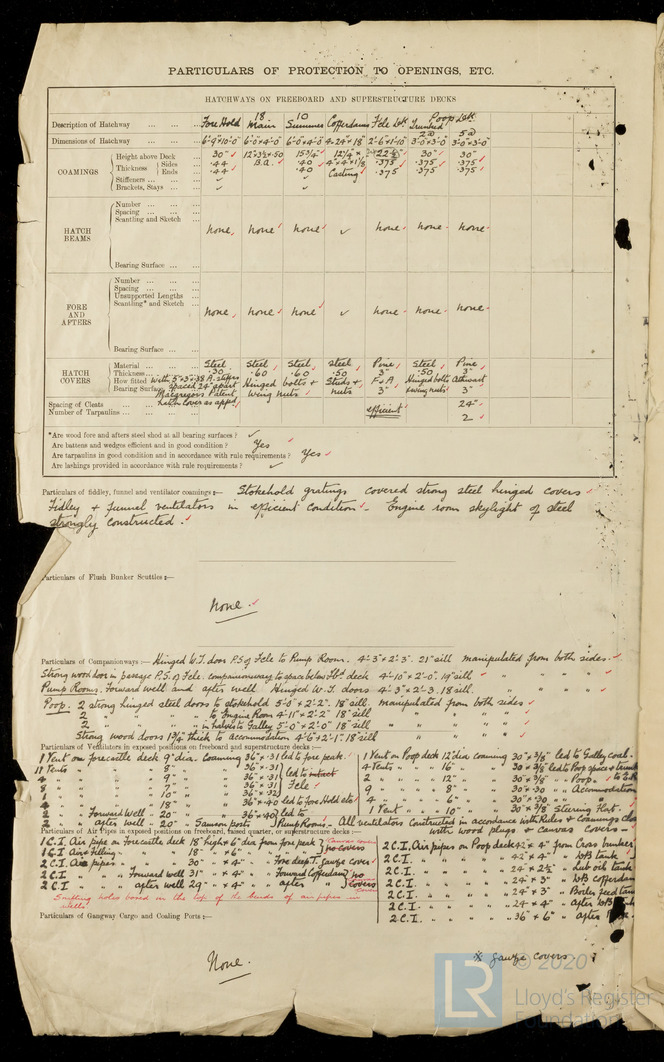 PARTICULARS OF PROTECTION TO OPENINGS, ETC.
HATCHWAYS ON FREEBOARD AND SUPERSTRUCTURE DECKS
Description of Hatchway Fore Hold 18 Main 10 Summer Cofferdams Fcle Dk. Trunked Poop Dek
Dimensions of Hatchway 6'-9"×10'-0" 6'-0"×4'-0" 6'-0"×4'-0" 24"×18" 2'-6"×1'-10" 2 @ 3'-0"×3'-0" 5 @ 3'-0"×3'-0"
COAMINGS
Height above Deck 30" 12"×3½×.50 15¾" 12¼" 22½" 30" 30"
Thickness Sides .44 B.A. .40 .375 .375 .375
Ends .44 .40 Casting .375 .375 .375
Stiffeners
Brackets, Stays
HATCH BEAMS
Number
Spacing
Scantling and Sketch
None None None None None None
Bearing Surface
FORE AND AFTERS
Number
Spacing
Unsupported Lengths
Scantling* and Sketch
None None None None None None
Bearing Surface
HATCH COVERS
Material Steel Steel Steel Steel Pine Steel Pine
Thickness .30 .60 .60 .50 3" .50 3"
How fitted with 5"×3"×.38 A. stiffrs spaced 24" apart Hinged bolts + wing nuts Studs & nuts F & A Hinged bolts & wing nuts Athwart
Bearing Surface Macgregors Patent 3" 3"
Hatch Cover as appd.
Spacing of Cleats 24"
Number of Tarpaulins efficient 2
*Are wood fore and afters steel shod at all bearing surfaces?
Are battens and wedges efficient and in good condition? Yes
Are tarpaulins in good condition and in accordance with rule requirements? Yes
Are lashings provided in accordance with rule requirements?
Particulars of fiddley, funnel and ventilator coamings:— Stokehold gratings covered strong steel hinged covers
Fidley & funnel ventilators in efficient condition. Engine room skylight of steel
strongly constructed.
Particulars of Flush Bunker Scuttles:—
None.
Particulars of Companionways:— Hinged W.T. door P.S. of Fcle to Pump Room. 4'-3"×2'-3". 21" sill manipulated from both sides.
Strong wood door in passage P.S. of Fcle. companionway to space below Fbd. deck 4'-10"×2'-0". 19" sill " " "
Pump Rooms. Forward well and after well. Hinged W.T. doors 4'-3"×2'-3. 18" sill. " " "
Poop. 2 strong hinged steel doors to stokehold 5'-0"×2'-2". 18" sill. manipulated from both sides
2 " " " to Engine Room 4'-11"×2'-2" 18" sill " " "
2 " " " to Galley 5'-0"×2'-0" 18" sill " " "
Strong wood doors 1¾" thick to accommodation 4'-6"×2'-1" 18" sill
Particulars of Ventilators in exposed positions on freeboard and superstructure decks:—
1 Vent on forecastle deck 9" dia. Coaming 36"×.31 led to fore peak.
11 Vents " " 8" " " 36"×.31
4 " " " 9" " " 36"×.31 led to Fcle
8 " " " 7" " " 36"×.31
1 " " " 10" " " 36"×.32
4 " " " 18" " " 36"×.40 led to fore Hold etc
2 " Forward Well 20" " " 36"×.40 led to
2 " after well 20" Samson posts Pump Rooms.
1 Vent on Poop deck 12" dia coaming 30"×3/8" led to Galley coal.
4 Vents " " 16" " " 30"×3/8" led to Poop space & trunk
2 " " " 12" " " 30"×3/8" " Poop
9 " " " 8" " " 30"×.30 " Accomodation
4 " " " 6" " " 30"×.30 "
1 Vent " " 10" " " 30"×3/8 " Steering Flat.
All ventilators constructed in accordance with Rules & Coamings closed
with wood plugs & canvas covers.
Particulars of Air Pipes in exposed positions on freeboard, raised quarter, or superstructure decks:—
1 C.I. Air pipe on Forecastle deck 18" high × 6" dia from fore peak Canvas covers
1 C.I Air & Filling " " 18" " × 6" " " no covers
2 C.I. Air pipes " " 30" " × 4" " Fore deep T. gauze cover
2 C.I " Forward Well 31" " × 4" " Forward Cofferdam no
2 C.I " after well 29" " × 4" " after " covers
Snifting holes bored in the top of the bends of air pipes in
wells.
2 C.I. Air pipes on Poop deck 42"×4" from Cross bunker
2 C.I. " " " 42"×4" " W.B tank
2 C.I. " " " 24"×2½" " Lub oil tank
2 C.I. " " " 24"×3" " W.B Cofferdam
2 C.I. " " " 24"×3" " Boiler feed tank
2 C.I. " " " 24"×4" " after W.B tank
2 C.I. " " " 36"×6" " after
Particulars of Gangway Cargo and Coaling Ports:—
None.
* gauze covers.
LR
© 2020
Lloyd's Register
Foundation